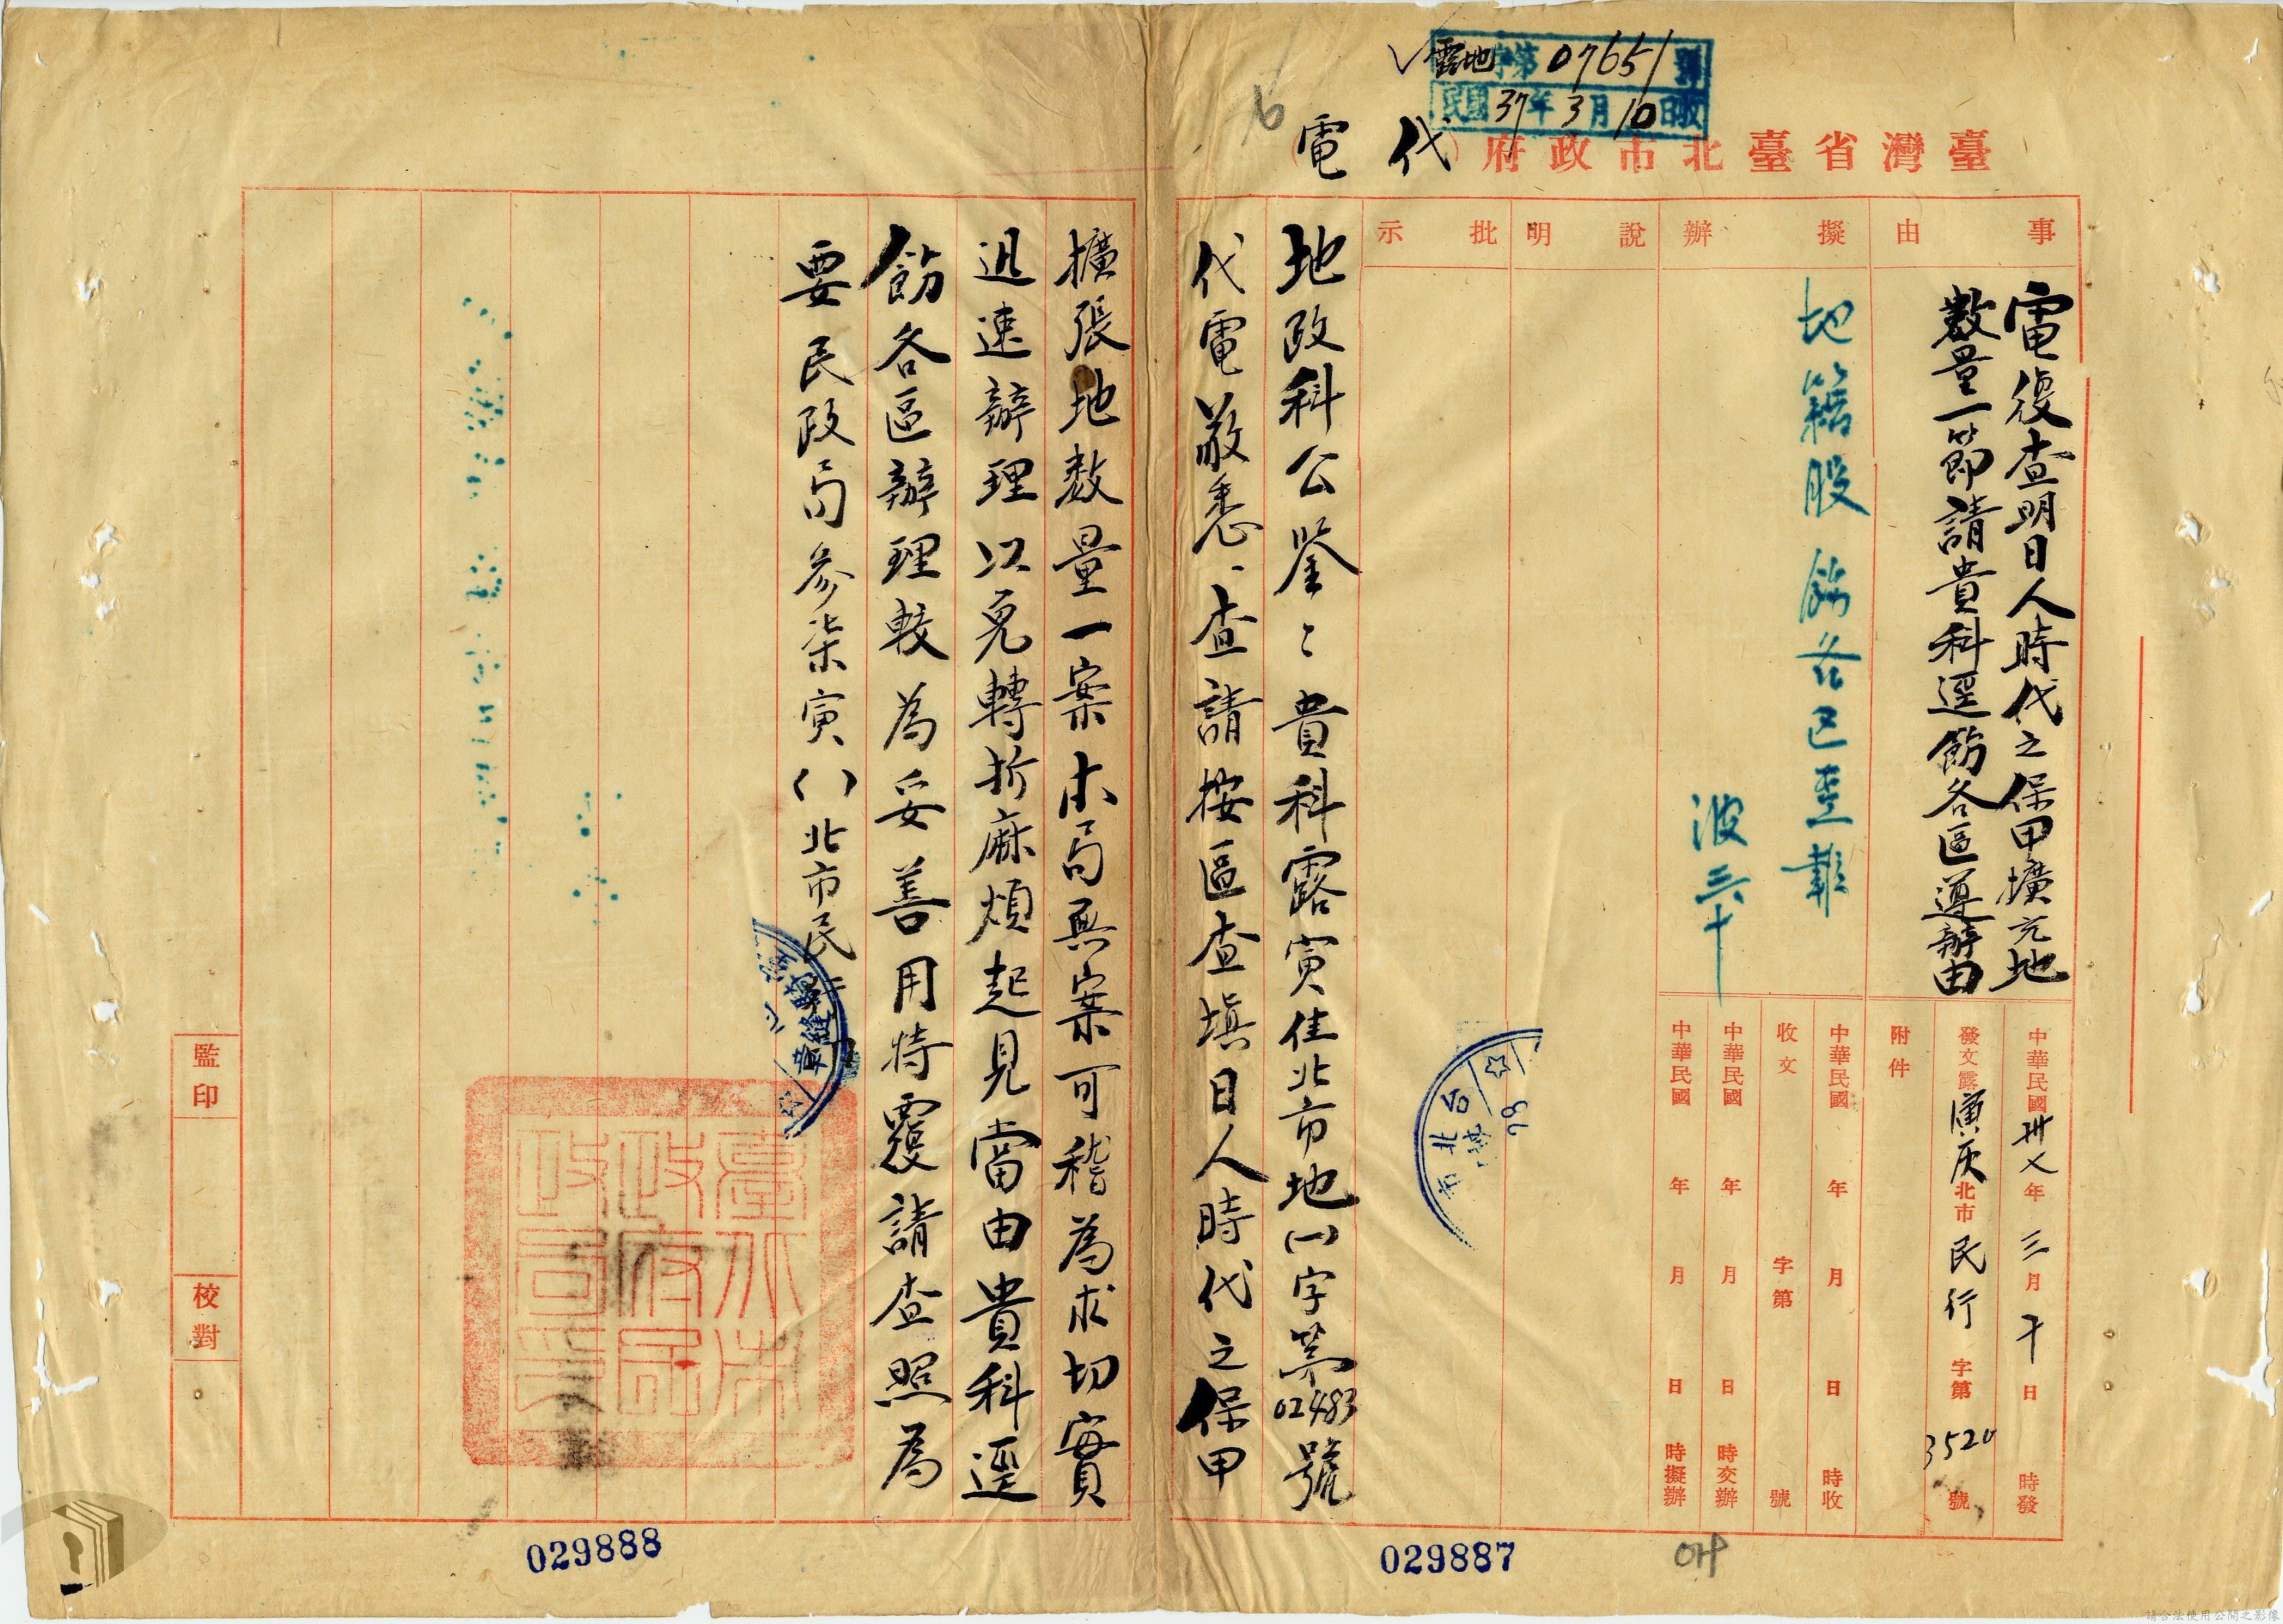 露地字第07651號
民國37年3月10日收
臺灣省臺北市政府(代電)
事由
電復查明日人時代之保甲擴充地
數量一節請貴科逕飭各區遵辦由
擬辦
地籍股 飭各區查報
波 三十
說明
批示
中華民國卅七年三月十日 時發
發文露寅灰北市民行字第3520號
附件
中華民國 年 月 日 時收
收文 字第 號
中華民國 年 月 日 時交辦
中華民國 年 月 日 時擬辦
地政科公鑒:貴科露寅佳北市地(一)字第02483號
代電敬悉、查請按區查填日人時代之保甲
擴張地數量一案本局無案可稽為求切實
迅速辦理以免轉折麻煩起見當由貴科逕
飭各區辦理較為妥善用特覆請查照為
要民政局參柒寅()北市民
臺北市政府民政局印
監印
校對
029887
029888